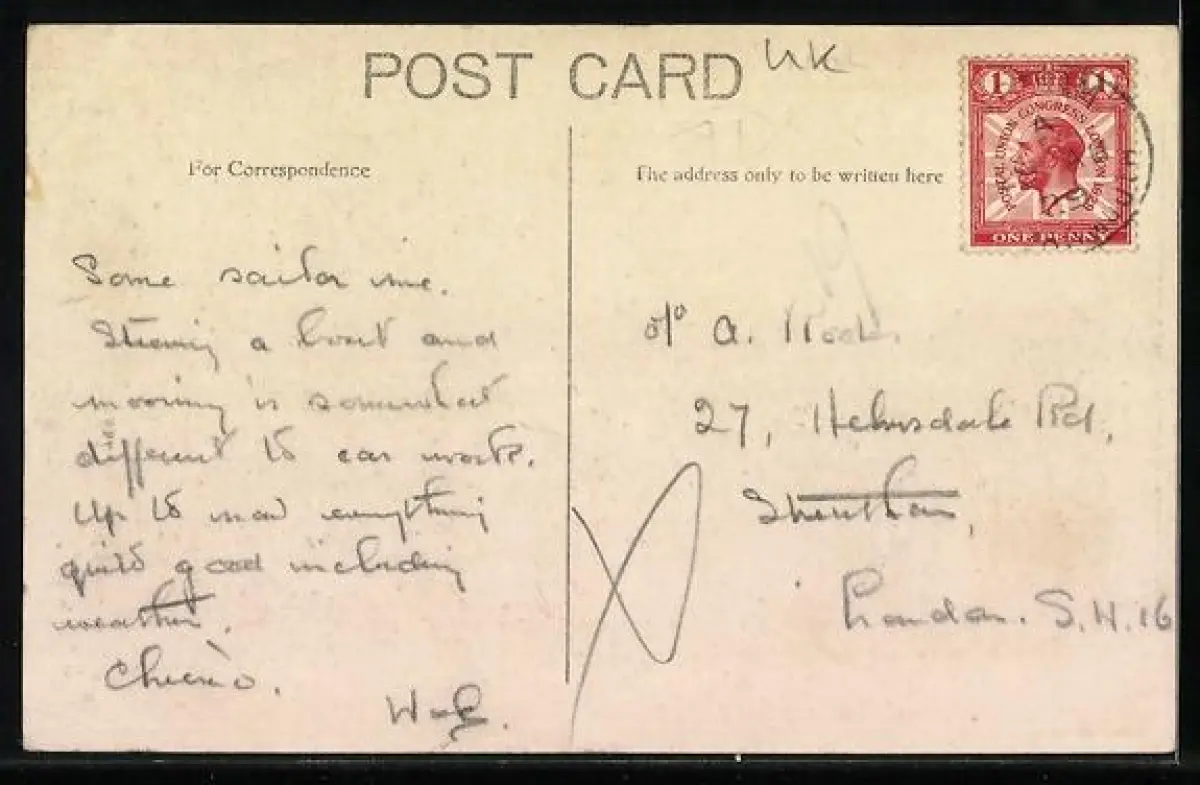 POST CARD UK
For Correspondence
The address only to be written here
1 1
POSTAL UNION CONGRESS LONDON 1929
ONE PENNY
Some sailor me.
a boat and
mooring is somewhat
different to car work.
Up to now everything
quite good including
weather.
Cheerio.
c/o A.
27, Helmsdale Rd,
Streatham,
London. S.W.16